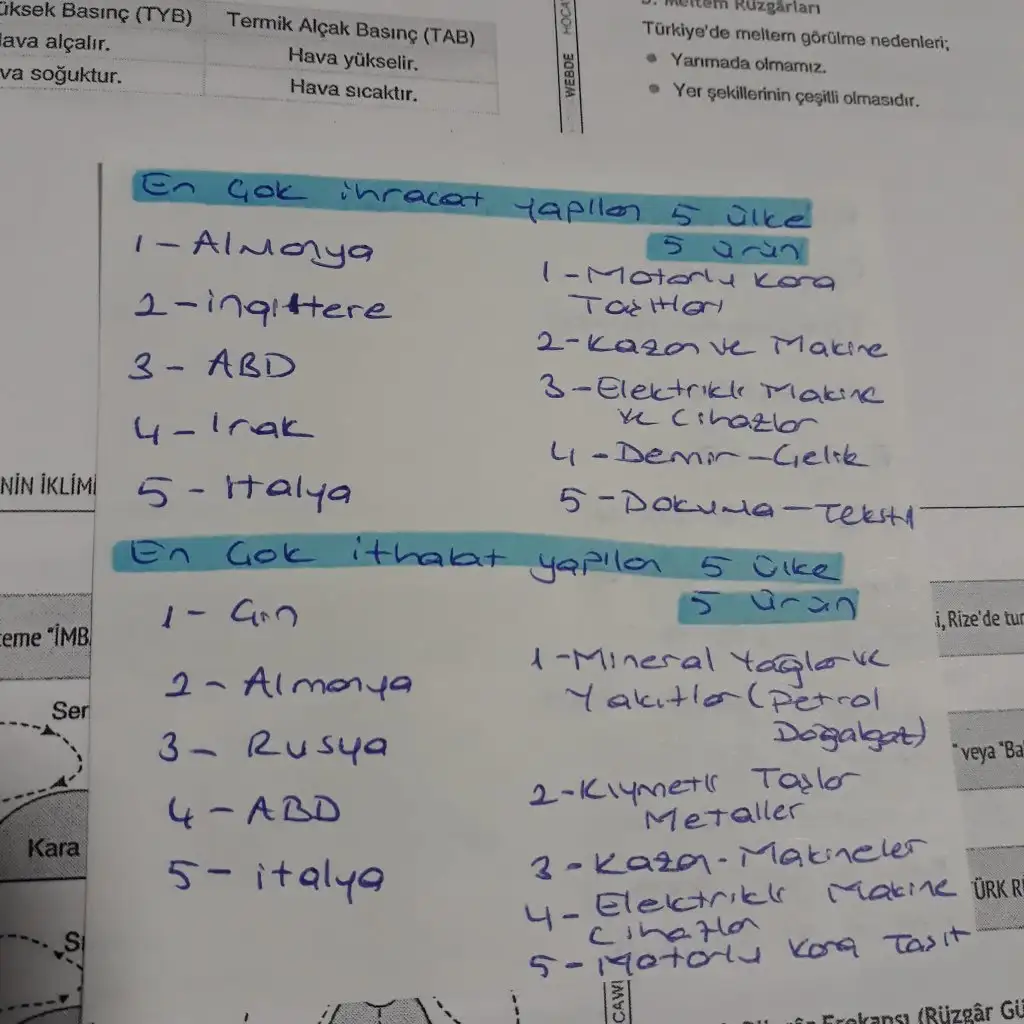 üksek Basınç (TYB)
Termik Alçak Basınç (TAB)
Hava alçalır.
Hava yükselir.
va soğuktur.
Hava sıcaktır.
WEBDE HOCA
Meltem Rüzgârları
Türkiye'de meltem görülme nedenleri;
• Yarımada olmamız.
• Yer şekillerinin çeşitli olmasıdır.
En Çok ihracat yapılan 5 ülke
5 ürün
1-Almanya
2-ingiltere
3-ABD
4-Irak
5-Italya
1-Motorlu Kara
Taşıtları
2-Kazan ve Makine
3-Elektrikli Makine
ve Cihazlar
4-Demir-Çelik
5-Dokuma-Tekstil
NİN İKLİMİ
En Çok ithalat yapılan 5 ülke
5 ürün
1-Çin
2-Almanya
3-Rusya
4-ABD
5-italya
1-Mineral Yağlar ve
Yakıtlar (Petrol
Doğalgaz)
2-Kıymetli Taşlar
Metaller
3-Kazan-Makineler
4-Elektrikli Makine
Cihazlar
5-Motorlu Kara Taşıt
eme "İMB
Ser
Kara
i, Rize'de tur
" veya "Ba
ÜRK R
CAWI
Frekansı (Rüzgâr Gü